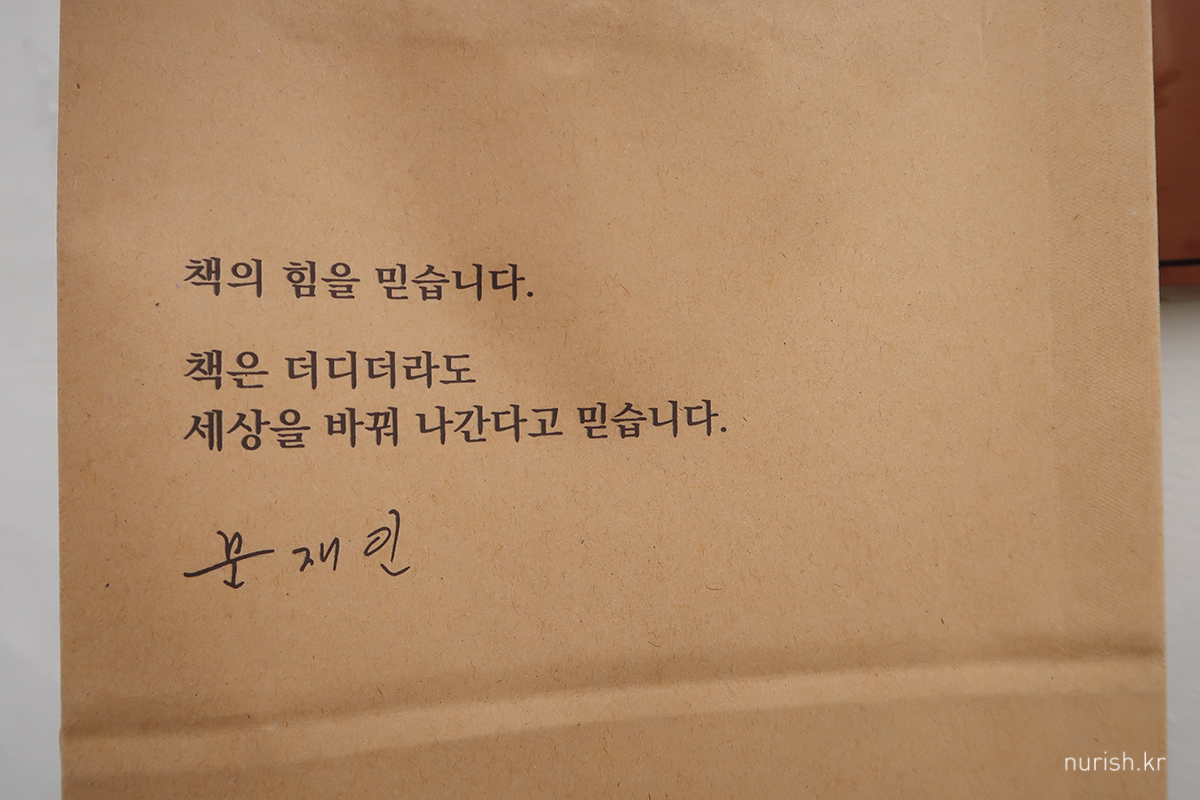 책의 힘을 믿습니다.
책은 더디더라도
세상을 바꿔 나간다고 믿습니다.
문재인
nurish.kr